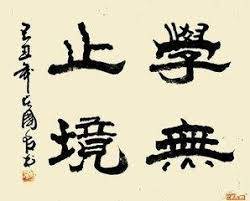 學無
止境
己丑年